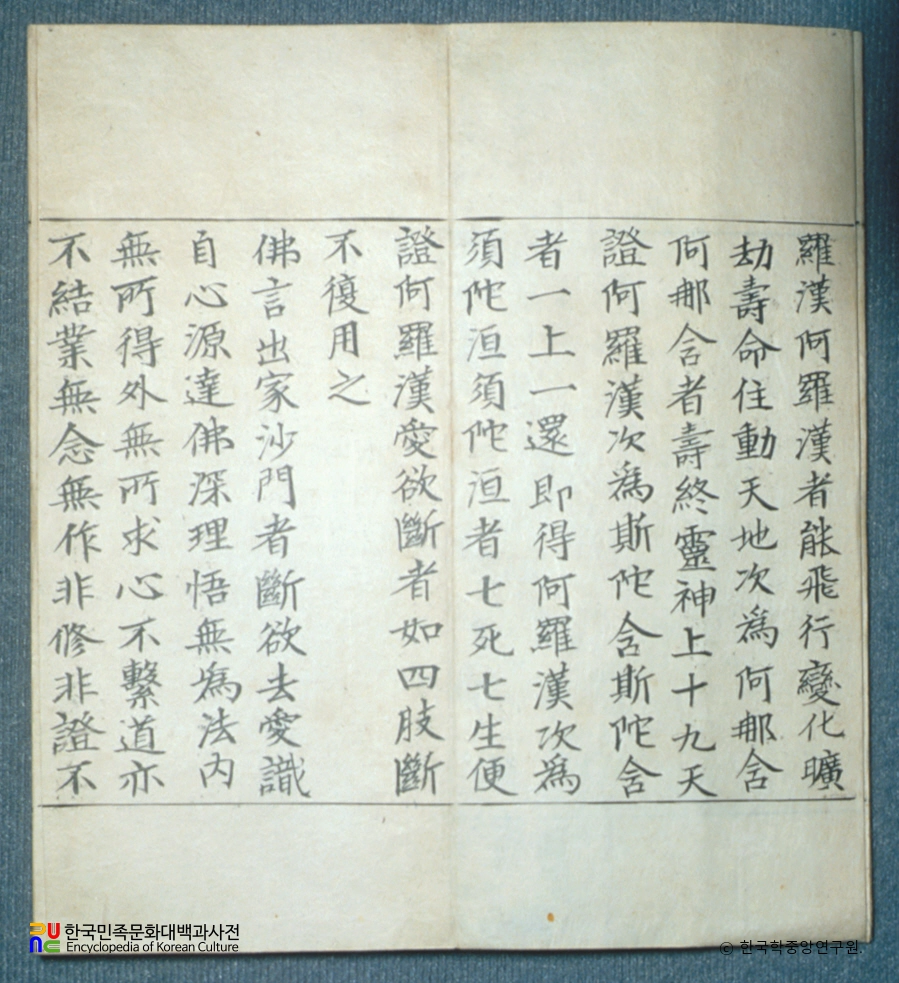 羅漢阿羅漢者能飛行變化曠
劫壽命住動天地次爲阿那含
阿那含者壽終靈神上十九天
證阿羅漢次爲斯陀含斯陀含
者一上一還即得阿羅漢次爲
須陀洹須陀洹者七死七生便
證阿羅漢愛欲斷者如四肢斷
不復用之
佛言出家沙門者斷欲去愛識
自心源達佛深理悟無爲法內
無所得外無所求心不繫道亦
不結業無念無作非修非證不
한국민족문화대백과사전
Encyclopedia of Korean Culture
© 한국학중앙연구원.